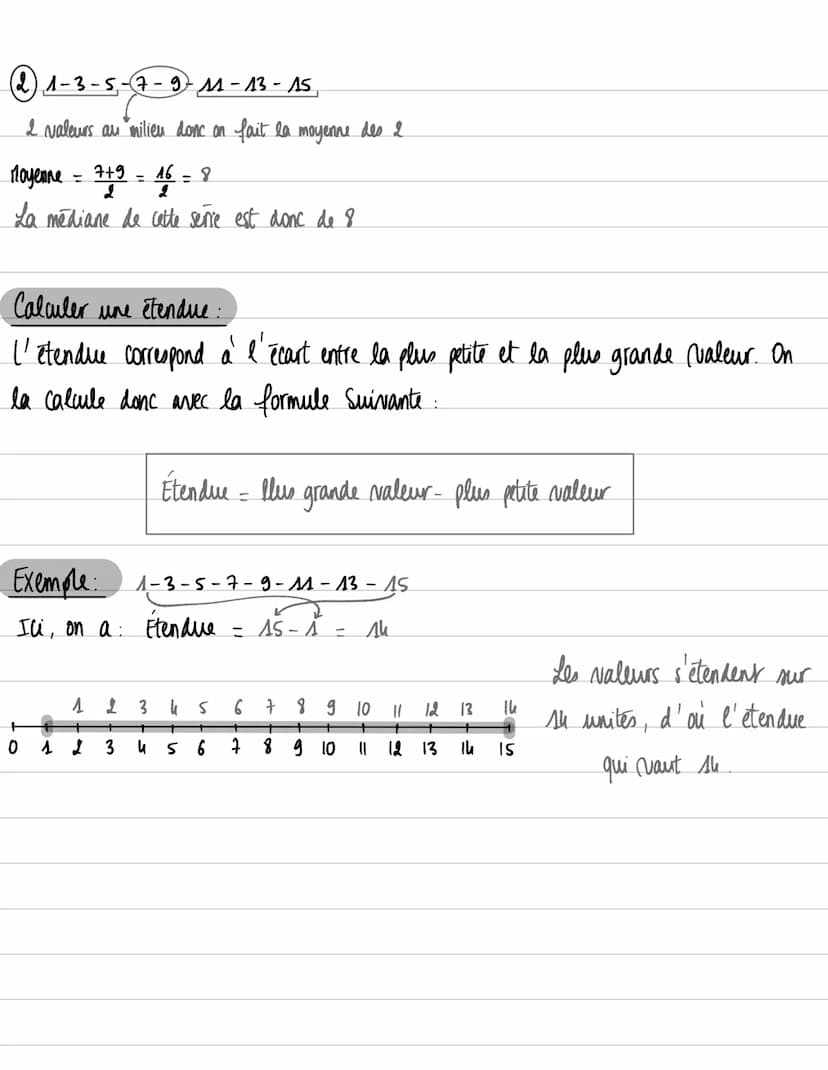 ② 1-3-5-7-9-11-13-15
2 valeurs au milieu donc on fait la moyenne des 2
Moyenne = 7+9/2 = 16/2 = 8
La médiane de cette série est donc de 8
Calculer une étendue :
L'étendue correspond à l'écart entre la plus petite et la plus grande valeur. On
la calcule donc avec la formule suivante :
Étendue = Plus grande valeur - plus petite valeur
Exemple : 1-3-5-7-9-11-13-15
Ici, on a : Étendue = 15-1 = 14
Les valeurs s'étendent sur
14 unités, d'où l'étendue
qui vaut 14.
1 2 3 4 5 6 7 8 9 10 11 12 13 14
0 1 2 3 4 5 6 7 8 9 10 11 12 13 14 15